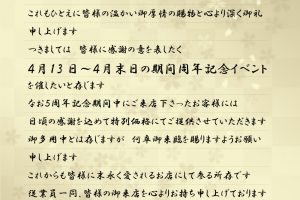 これもひとえに皆様の温かい御厚情の賜物と心より深く御礼
申し上げます
つきましては　皆様に感謝の意を表したく
4月13日～4月末日の期間周年記念イベント
を催したいと存じます
なお5周年記念期間中にご来店下さったお客様には
日頃の感謝を込めて特別価格にてご提供させていただきます
御多用中とは存じますが　何卒御来臨を賜りますようお願い
申し上げます
これからも皆様に末永く愛されるお店にして参る所存です
従業員一同、皆様の御来店を心よりお待ち申し上げております